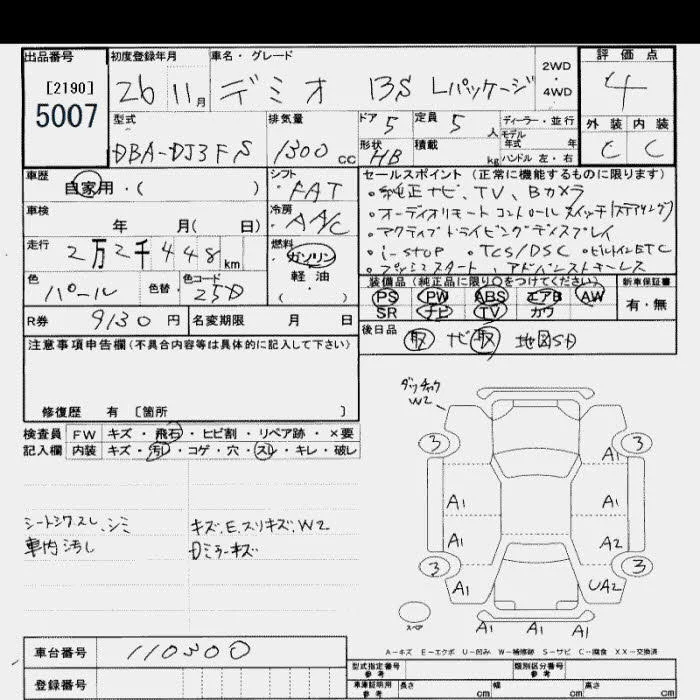 出品番号
[2190]
5007
初度登録年月
26 11月
車名・グレード
デミオ 13S Lパッケージ
2WD
・
4WD
評価点
4
外装 内装
C C
型式
DBA-DJ3FS
排気量
1300 cc
ドア 5
定員 5 人
形状 HB
積載 kg
ディーラー・並行
モデル
年式 年
ハンドル 左・右
車歴
自家用・( )
シフト
FAT
車検
年 月( 日)
冷房
AAC
走行
2万2千448km
燃料
ガソリン
軽油
( )
色
パール
色替
色コード
25D
R券 9130円
名変期限 月 日
セールスポイント (正常に機能するものに限ります)
・純正ナビ、TV、Bカメラ
・オーディオリモートコントロールスイッチ(ステアリング)
・アクティブドライビングディスプレイ
・i-stop ・TCS/DSC ・ビルトインETC
・プッシュスタート、アドバンストキーレス
装備品(純正品に限り○をつけてください)
PS PW ABS エアB AW
SR ナビ TV カワ
新車保証書
有・無
後日品
取 ナビ取 地図SD
注意事項申告欄(不具合内容等は具体的に記入して下さい)
修復歴 有 [箇所 ]
検査員
記入欄
FW キズ・飛石・ヒビ割・リペア跡・×要
内装 キズ・汚レ・コゲ・穴・スレ・キレ・破レ
シートシワスレ、シミ
車内汚し
キズ、E、スリキズ、W2
ミラーキズ
W2
3 3
A1
A1 A1
A1 A2
3 3
A1 UA2
スペア
A1 A1 A1
A-キズ E-エクボ U-凹み W-補修跡 S-サビ C-腐食 XX-交換済
車台番号 110300
登録番号
型式指定番号
参考
類別区分番号
参考
車庫証明用
参考
長さ cm
幅 cm
高さ cm